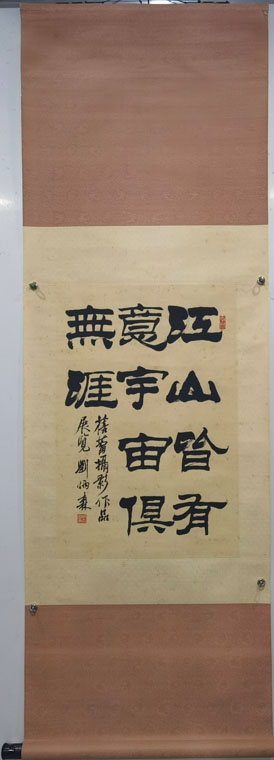 江山皆有
意宇宙俱
無涯
蓓蕾攝影作品
展覽 劉炳森